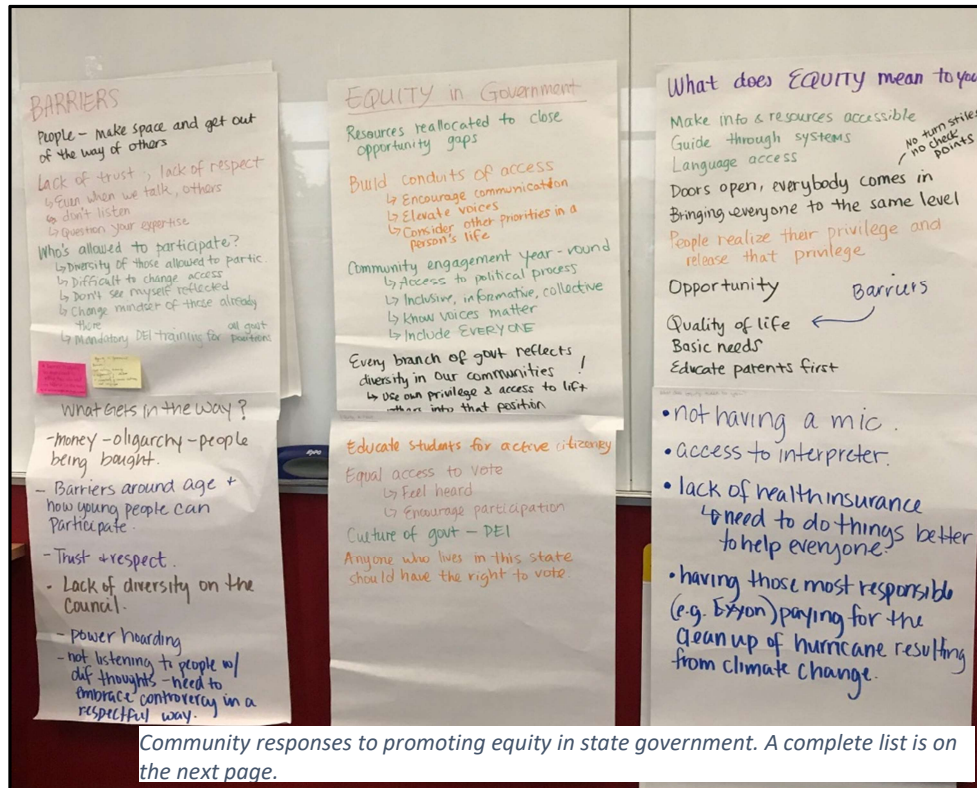 BARRIERS
People - make space and get out
of the way of others
Lack of trust, lack of respect
↳ Even when we talk, others
↳ don't listen
↳ Question your expertise
Who's allowed to participate?
↳ Diversity of those allowed to partic.
↳ Difficult to change access
↳ Don't see myself reflected
↳ Change mindset of those already
there
↳ Mandatory DEI training for all govt
positions
What Gets in the way?
-money -oligarchy -people
being bought.
- Barriers around age +
how young people can
Participate.
-Trust + respect.
• Lack of diversity on the
Council.
- power hoarding
-not listening to people w/
dif thoughts -need to
embrace controvercy in a
respectful way.
EQUITY in Government
Resources reallocated to close
opportunity gaps
Build conduits of access
↳ Encourage communication
↳ Elevate voices
↳ Consider other priorities in a
person's life
Community engagement year-round
↳ Access to political process
↳ Inclusive, informative, collective
↳ Know voices matter
↳ Include EVERYONE
Every branch of govt reflects
diversity in our communities!
↳ Use own privilege & access to lift
others into that position
Educate students for active citizency
Equal access to vote
↳ Feel heard
↳ Encourage participation
Culture of govt - DEI
Anyone who lives in this state
should have the right to vote.
What does EQUITY mean to you
Make info & resources accessible
Guide through systems
Language access
No turn stiles
no check
points
Doors open, everybody comes in
Bringing everyone to the same level
People realize their privilege and
release that privilege
Opportunity
Barriers
Quality of life
Basic needs
Educate parents first
• not having a mic.
• access to interpreter.
• lack of health insurance
↳ need to do things better
to help everyone.
• having those most responsible
(e.g. Exxon) paying for the
clean up of hurricane resulting
from climate change.
Community responses to promoting equity in state government. A complete list is on
the next page.